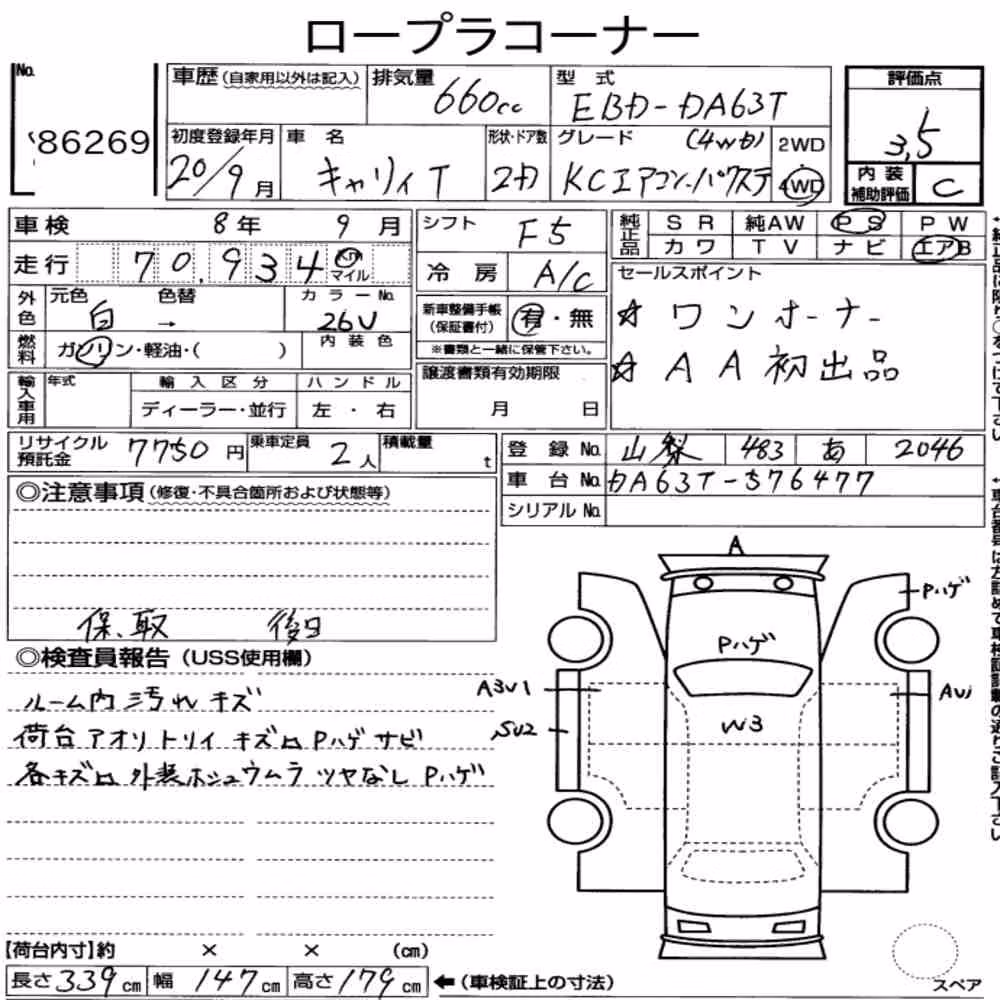 ロープラコーナー
No.
86269
車歴 (自家用以外は記入)
排気量 660cc
型式 EBD-DA63T
評価点
3.5
初度登録年月 20/9月
車名 キャリィT
形状・ドア数 2D
グレード (4WD) KCエアコン・パワステ
2WD
4WD
内装
補助評価 C
車検 8年 9月
シフト F5
純正品 SR 純AW PS PW
カワ TV ナビ エアB
走行 70,934 Km マイル
冷房 A/C
セールスポイント
☆ ワンオーナー
☆ AA初出品
外色 元色 白 色替 → カラーNo. 26U
新車整備手帳
(保証書付) 有・無
※書類と一緒に保管下さい。
燃料 ガソリン・軽油・( ) 内装色
譲渡書類有効期限
月 日
輸入車用 年式 輸入区分 ハンドル
ディーラー・並行 左・右
リサイクル
預託金 7750円 乗車定員 2人 積載量 t
登録No. 山梨 483 あ 2046
車台No. DA63T-576477
シリアルNo.
◎注意事項(修復・不具合箇所および状態等)
保、取 後日
◎検査員報告(USS使用欄)
ルーム内汚れ キズ
荷台アオリトリイ キズ凹 Pハゲ サビ
各キズ凹 外装ホシュウムラ ツヤなし Pハゲ
A
Pハゲ
Pハゲ
A3U1
AU1
SU2
W3
【荷台内寸】約 × × (cm)
長さ339cm 幅147cm 高さ179cm ←(車検証上の寸法)
スペア